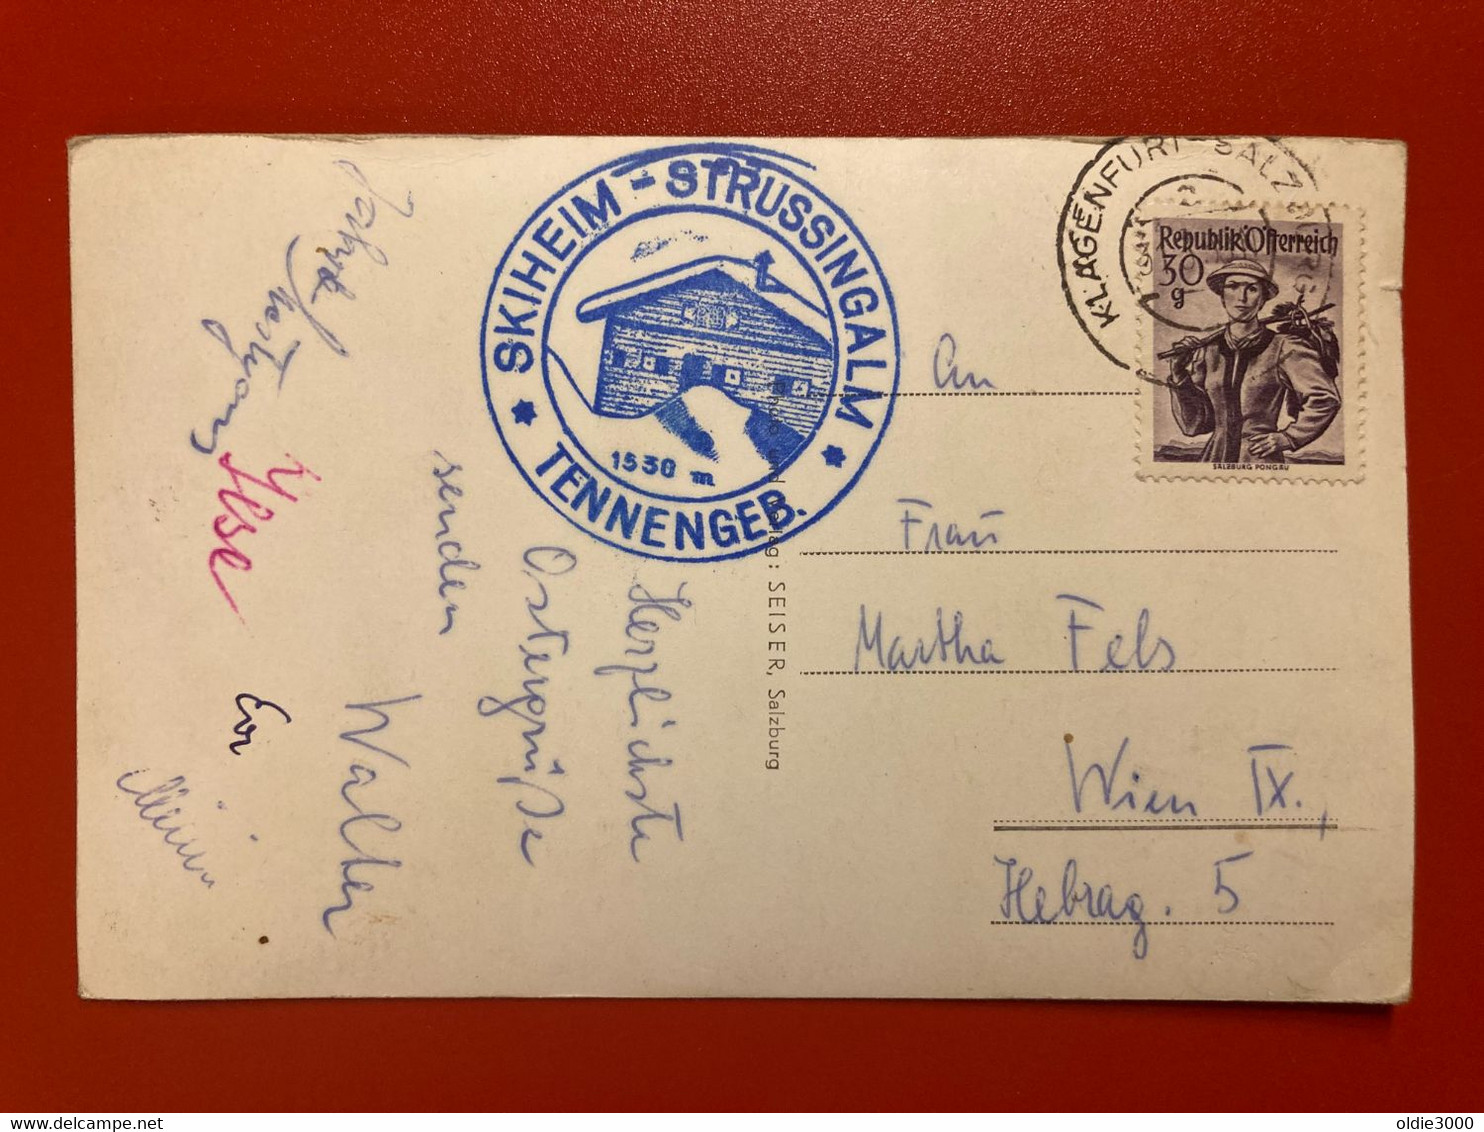 SKIHEIM - STRUSSINGALM
1530 m
TENNENGEB.
Herzlichste
Ostergrüße
senden
Walter
Ilse
Evi
KLAGENFURT - SALZBURG
Republik Österreich
30
g
SALZBURG PONGAU
An
Frau
Martha Fels
Wien IX.,
Hebrag. 5
Verlag: SEISER, Salzburg
oldie3000